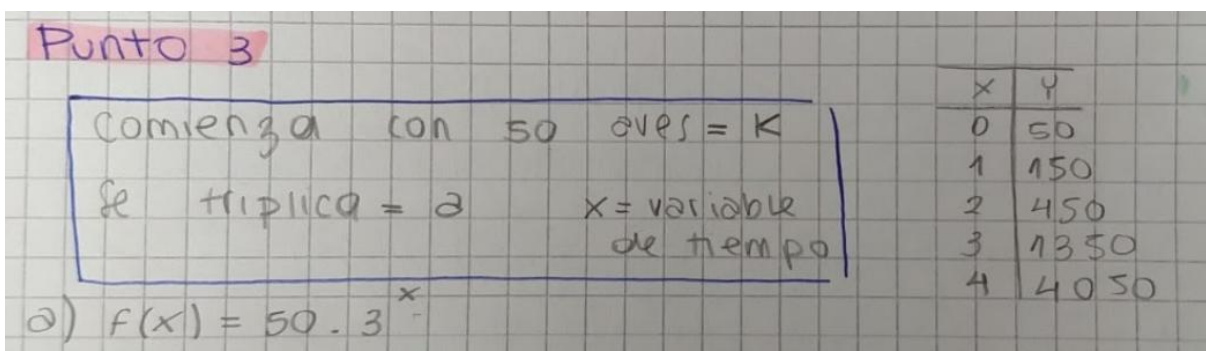 Punto 3
Comienza con 50 aves = K
Se triplica = a x = variable
de tiempo
a) f(x) = 50 . 3^x
X Y
0 50
1 150
2 450
3 1350
4 4050